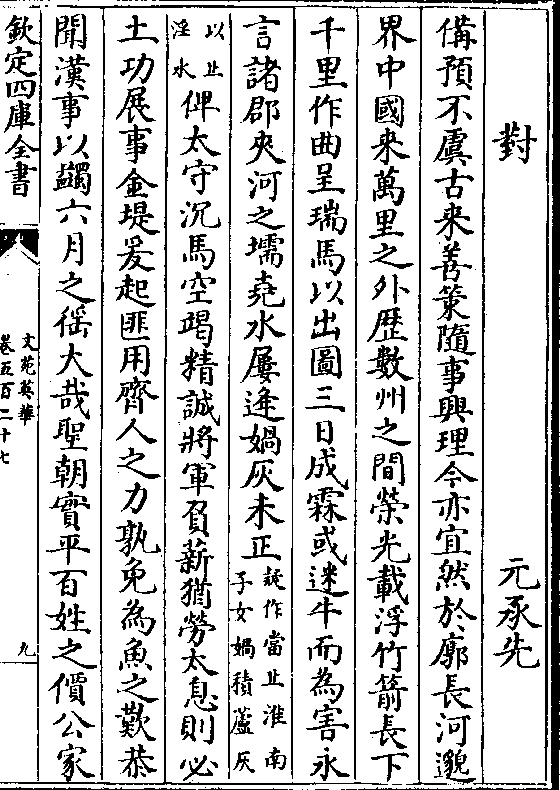 對　元承先
備預不虞古来善策隨事興理今亦宜然於廓長河邈
界中國来萬里之外歴數州之間榮光載浮竹箭長下
千里作曲呈瑞馬以出圖三日成霖或迷牛而為害永
言諸郡夾河之壖堯水屢逢媧灰未正疑作當止淮南子女媧積蘆灰
以止淫水俾太守沉馬空竭精誠將軍負薪猶勞太息則必
土功展事金堤爰起匪用齊人之力孰免為魚之歎恭
聞漢事以蠲六月之徭大哉聖朝實平百姓之價公家
欽定四庫全書
文苑英華
卷五百二十七
九